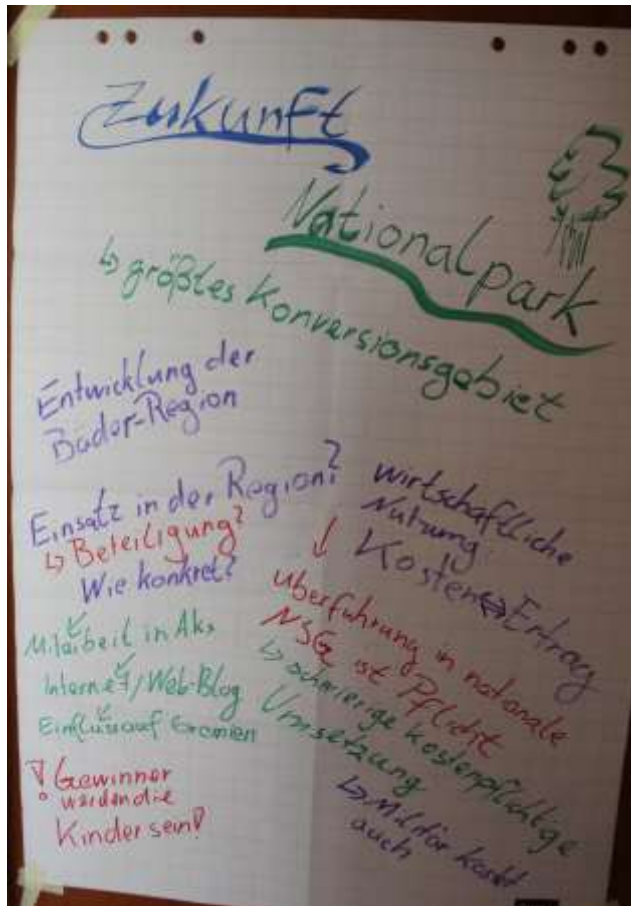 Zukunft
Nationalpark
↳ größtes Konversionsgebiet
Entwicklung der
Bäder-Region
Einsatz in der Region?
↳ Beteiligung?
Wie konkret?
Mitarbeit in AKs
Internet/Web-Blog
Einfluss auf Gremien
! Gewinner
werden die
Kinder sein!
wirtschaftliche
Nutzung
Kosten ⇔ Ertrag
↓
Überführung in nationale
NSG ist Pflicht
↳ schwierige kostenpflichtige
Umsetzung
↳ Militär kostet
auch